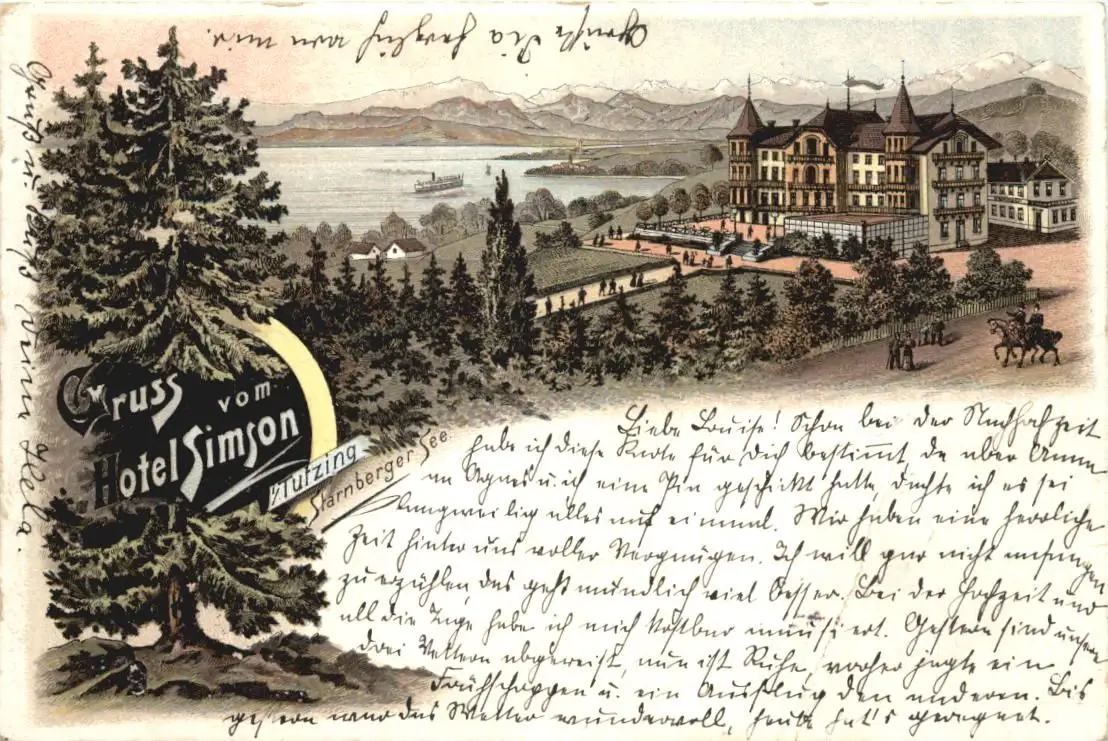 Grüße Die herzlich von mir
Gruss vom
Hotel Simson
i/Tutzing
Starnberger See.
Liebe Louise! Schon bei der Nachhochzeit
habe ich diese Karte für Dich bestimmt da aber Anna
an Agnes u. ich eine Pin geschickt hatte, dachte ich es sei
langweilig alles auf einmal. Wir haben eine herrliche
Zeit hinter uns voller Vergnügen. Ich will gar nicht anfangen
zu erzählen, das geht mündlich viel besser. Bei der Hochzeit und
all die Tage habe ich mich kostbar amüsiert. Gestern sind unsere
drei Vettern abgereist, nun ist Ruhe, vorher jagte ein
Frühschoppen u. ein Ausflug den anderen. Bis
gestern war das Wetter wundervoll, heute hat's geregnet.
Gruß u. Kuß Deine Hela.